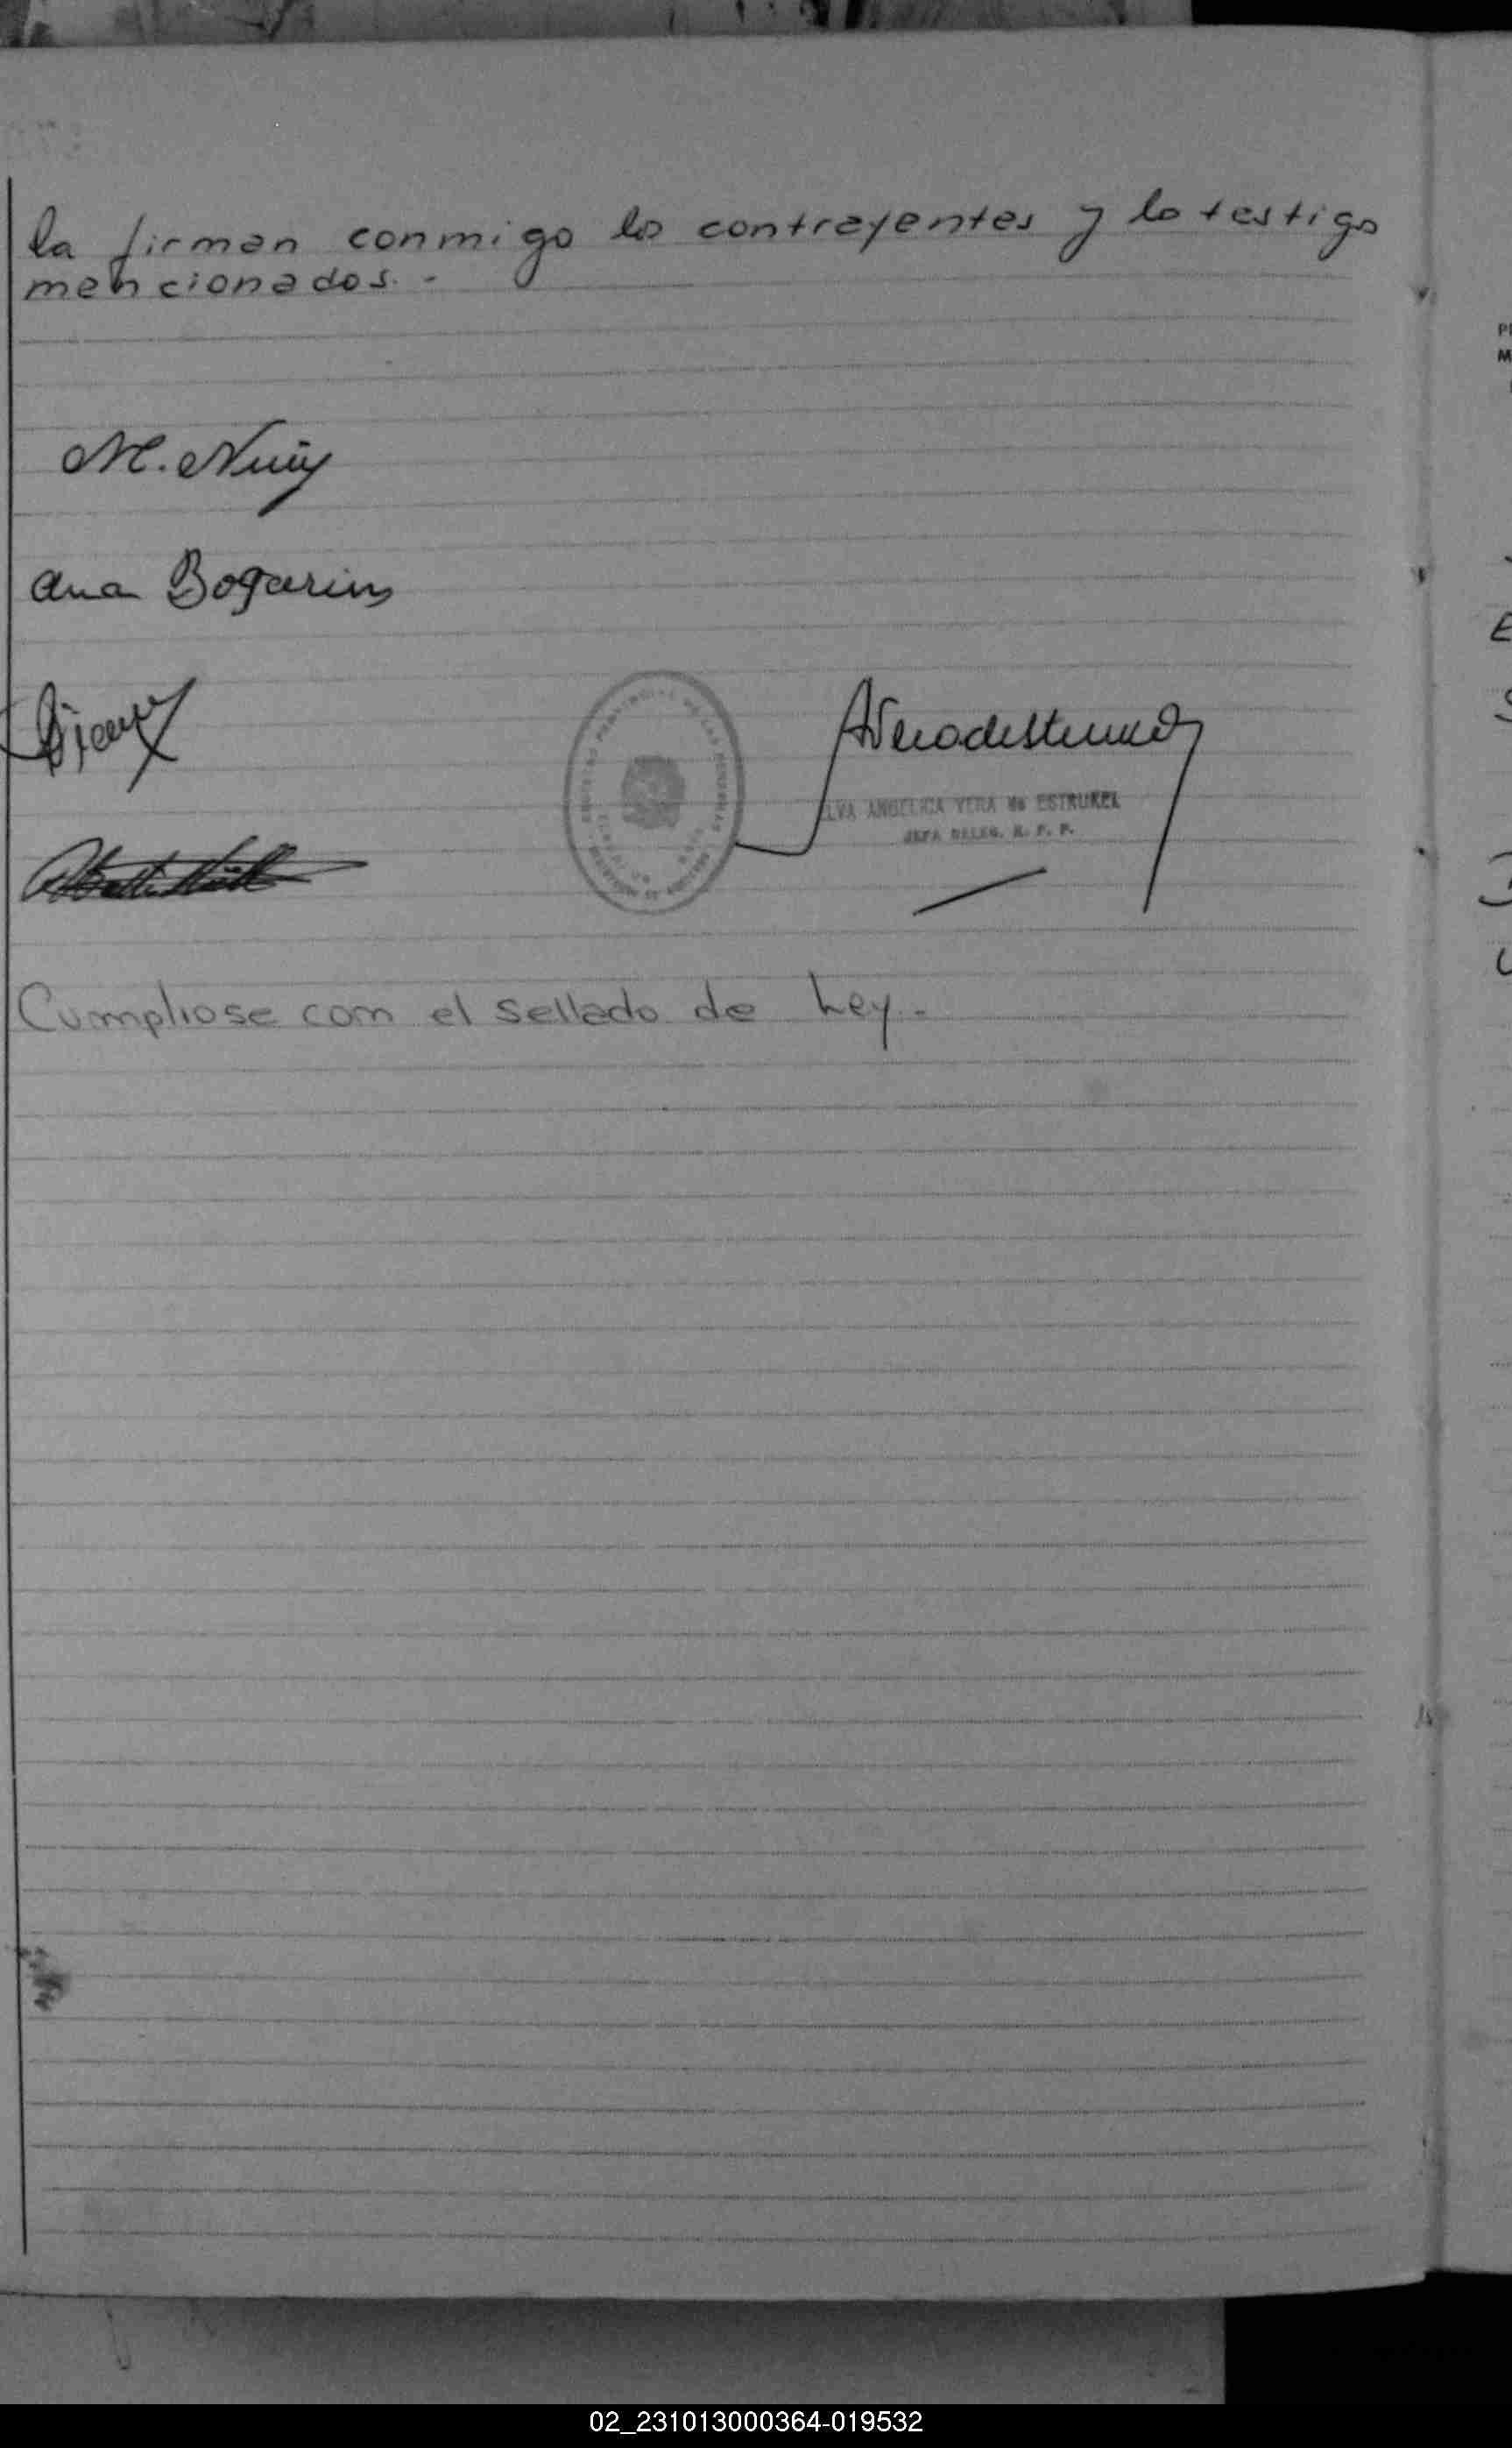 la firman conmigo los contrayentes y lo testigo
mencionados. -
M. Nuñ
Ana Bogarin
ELVA ANGELICA VERA de ESTRUKEL
JEFA DELEG. R. P. P.
Cumpliose con el sellado de Ley. -
02_231013000364-019532